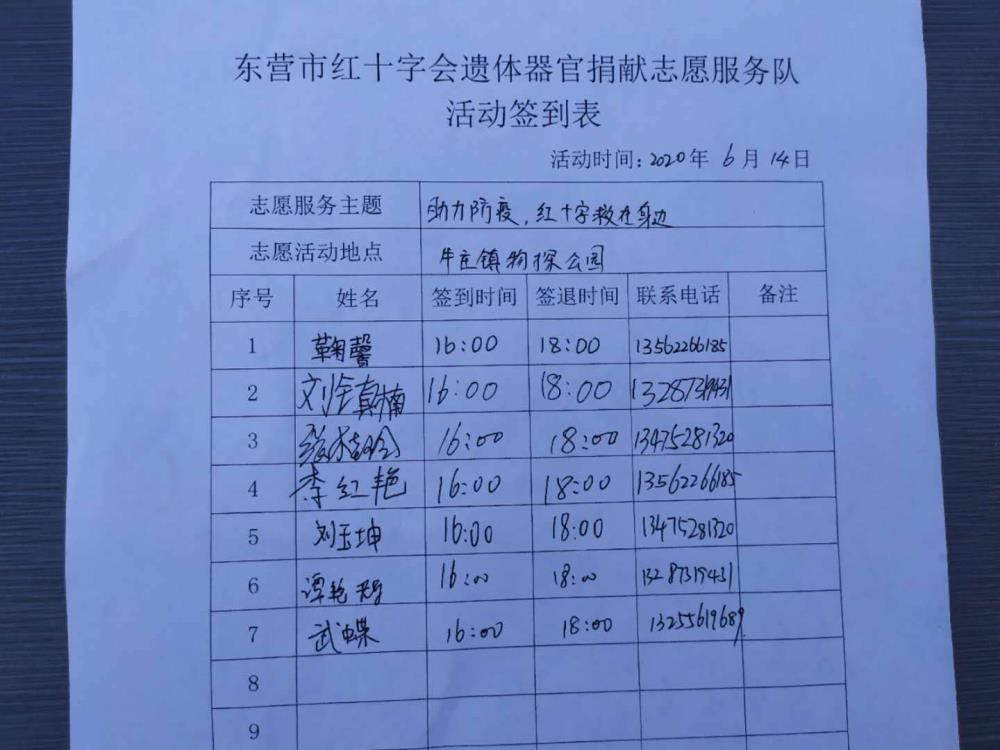 东营市红十字会遗体器官捐献志愿服务队
活动签到表
活动时间:2020年 6月 14日
志愿服务主题 助力防疫,红十字救在身边
志愿活动地点 牛庄镇物探公园
序号 姓名 签到时间 签退时间 联系电话 备注
1 鞠馨 16:00 18:00 13562266185
2 16:00 18:00 13287319431
3 16:00 18:00 13475281320
4 李红艳 16:00 18:00 13562266185
5 刘玉坤 16:00 18:00 13475281320
6 16:00 18:00 13287319431
7 武蝶 16:00 18:00 13255619689
8
9